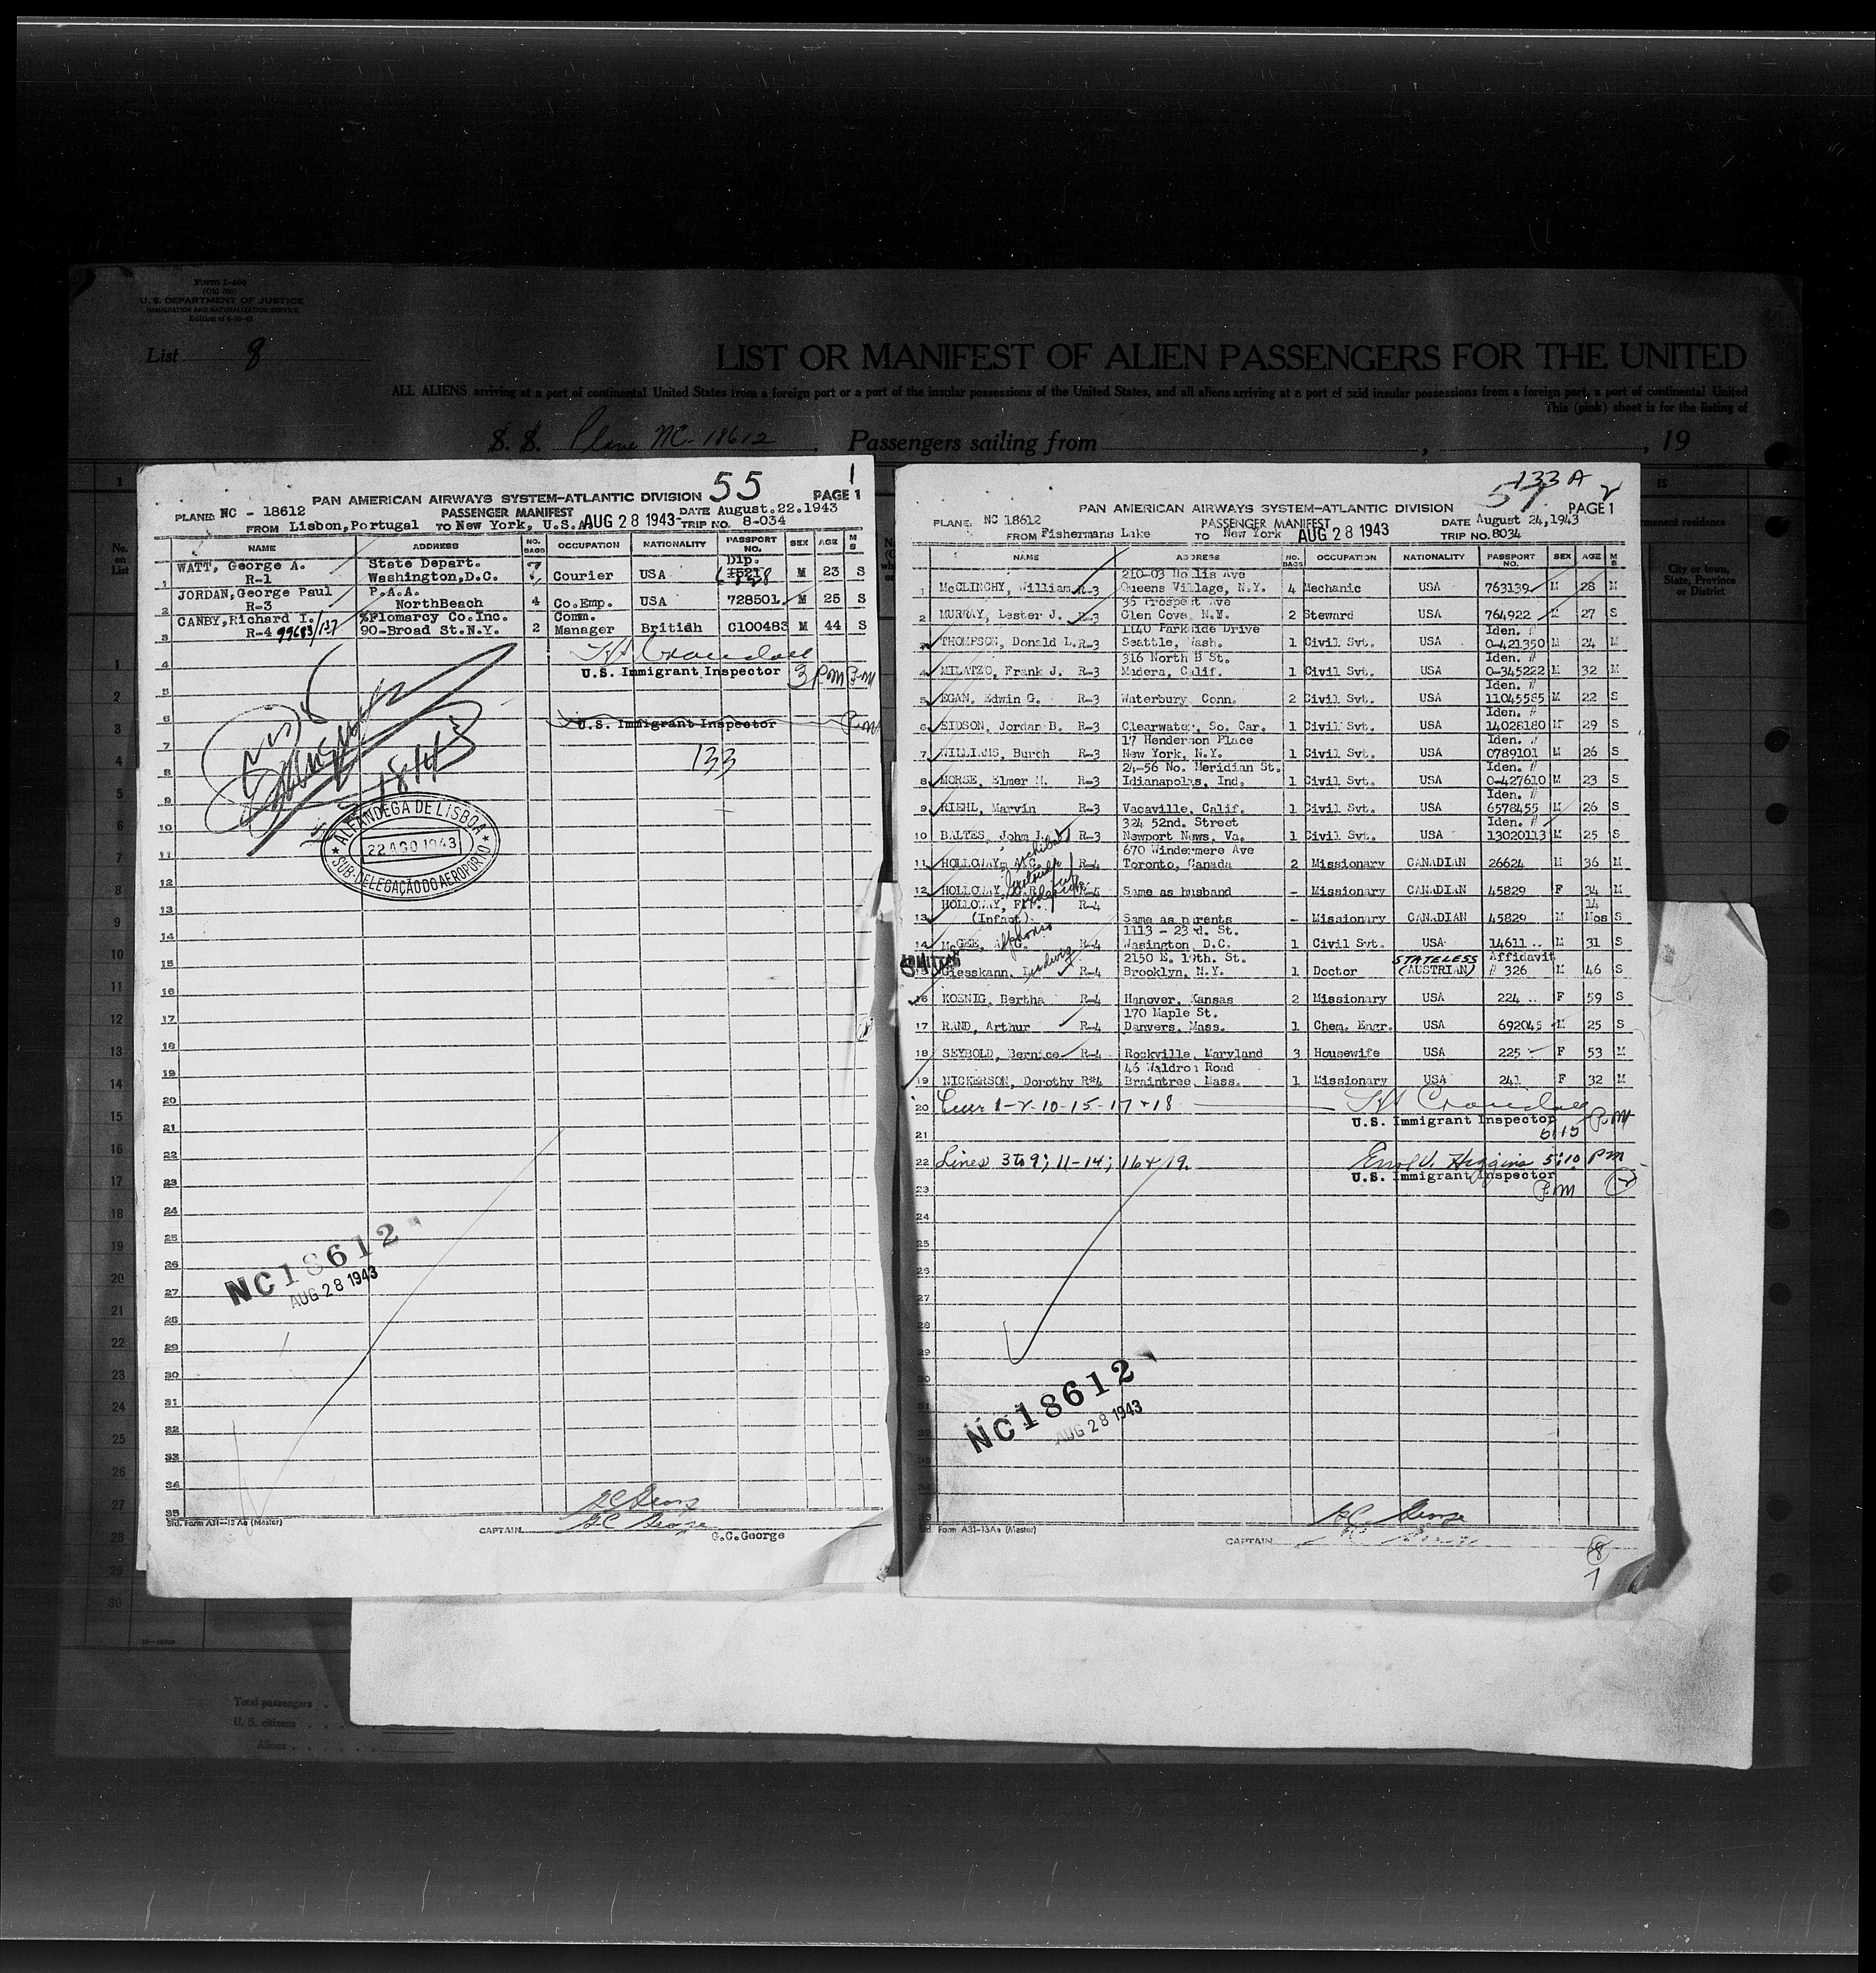 Form I-400
(Old 500)
U. S. DEPARTMENT OF JUSTICE
IMMIGRATION AND NATURALIZATION SERVICE
List 8
LIST OR MANIFEST OF ALIEN PASSENGERS FOR THE UNITED
ALL ALIENS arriving at a port of continental United States from a foreign port or a port of the insular possessions of the United States, and all aliens arriving at a port of said insular possessions from a foreign port, a port of continental United
This (pink) sheet is for the listing of
S. S. Plane NC-18612 Passengers sailing from , 19
55 1
PAN AMERICAN AIRWAYS SYSTEM-ATLANTIC DIVISION PAGE 1
PLANE NC - 18612 PASSENGER MANIFEST DATE August.22.1943
FROM Lisbon,Portugal TO New York, U.S.A. AUG 28 1943 TRIP NO. 8-034
NAME ADDRESS NO. BAGS OCCUPATION NATIONALITY PASSPORT NO. SEX AGE M S
WATT, George A. State Depart. Dip.
1 R-1 Washington,D.C. Courier USA M 23 S
JORDAN,George Paul P.A.A.
2 R-3 NorthBeach 4 Co.Emp. USA 728501 M 25 S
CANBY,Richard I. %Flomarcy Co.Inc. Comm.
3 R-4 99683/137 90-Broad St.N.Y. 2 Manager British C100483 M 44 S
4
U.S. Immigrant Inspector 3 PM
5
6 U.S. Immigrant Inspector
7
133
8
9
ALFANDEGA DE LISBOA
22 AGO 1943
SUB-DELEGAÇÃO DO AEROPORTO
10
11
12
13
14
15
16
17
18
19
20
21
22
23
24
25
26
NC18612
AUG 28 1943
27
28
29
30
31
32
33
34
35
Std. Form A31-13Aa (Master)
CAPTAIN G.C.George
133 A
57 2
PAN AMERICAN AIRWAYS SYSTEM-ATLANTIC DIVISION PAGE 1
PLANE NC 18612 PASSENGER MANIFEST DATE August 24,1943
FROM Fishermans Lake TO New York AUG 28 1943 TRIP NO. 8034
NAME ADDRESS NO. BAGS OCCUPATION NATIONALITY PASSPORT NO. SEX AGE M S
210-03 Hollis Ave
1 McCLINCHY, William R-3 Queens Village, N.Y. 4 Mechanic USA 763139 M 28 M
35 Prospect Ave
2 MURRAY, Lester J. R-3 Glen Cove, N.Y. 2 Steward USA 764922 M 27 S
1140 Parkside Drive Iden. #
3 THOMPSON, Donald L.R-3 Seattle, Wash. 1 Civil Svt. USA 0-421350 M 24 M
316 North B St. Iden. #
4 MILATZO, Frank J. R-3 Madera, Calif. 1 Civil Svt. USA 0-345222 M 32 M
Iden. #
5 EGAN, Edwin G. R-3 Waterbury, Conn. 2 Civil Svt. USA 11045585 M 22 S
Iden. #
6 EIDSON, Jordan B. R-3 Clearwater, So. Car. 1 Civil Svt. USA 14028180 M 29 S
17 Henderson Place Iden. #
7 WILLIAMS, Burch R-3 New York, N.Y. 1 Civil Svt. USA 0789101 M 26 S
24-56 No. Meridian St. Iden. #
8 MORSE, Elmer M. R-3 Idianapolis, Ind. 1 Civil Svt. USA 0-427610 M 23 S
Iden. #
9 RIEHL, Marvin R-3 Vacaville, Calif. 1 Civil Svt. USA 6578455 M 26 S
324 52nd. Street Iden. #
10 BALTES, John J. R-3 Newport News, Va. 1 Civil Svt. USA 13020113 M 25 S
670 Windermere Ave
11 HOLLOWAY, Archibald R-4 Toronto, Canada 2 Missionary CANADIAN 26624 M 36 M
12 HOLLOWAY, R-4 Same as husband - Missionary CANADIAN 45829 F 34 M
HOLLOWAY, R-4 14
13 (Infant) Same as parents - Missionary CANADIAN 45829 M Mos S
1113 - 23rd. St.
14 McGEE, Alphonso R-4 Wasington D.C. 1 Civil Svt. USA 14611 M 31 S
ADMITTED 2150 E. 19th. St. STATELESS Affidavit
15 Giesskann, Ludwig R-4 Brooklyn, N.Y. 1 Doctor (AUSTRIAN) # 326 M 46 S
16 KOENIG, Bertha R-4 Hanover, Kansas 2 Missionary USA 224 F 59 S
170 Maple St.
17 RAND, Arthur R-4 Danvers, Mass. 1 Chem. Engr. USA 692045 M 25 S
18 SEYBOLD, Bernice R-4 Rockville, Maryland 3 Housewife USA 225 F 53 M
46 Waldron Road
19 NICKERSON, Dorothy R#4 Braintree, Mass. 1 Missionary USA 241 F 32 M
20 Lines 1-2-10-15-17+18
U.S. Immigrant Inspector
21 5:15 P.M
22 Lines 3 to 9; 11-14; 16 & 19. Errol V. Higgins 5:10 PM
U.S. Immigrant Inspector
23
24
25
26
27
28
29
30
NC18612
AUG 28 1943
Std. Form A31-13Aa (Master)
CAPTAIN
8
7
Total passengers
U. S. citizens
Aliens